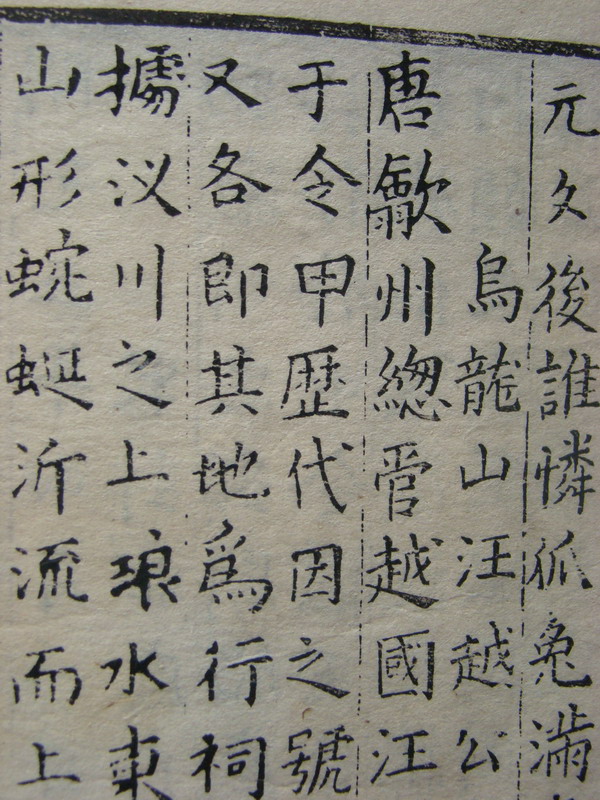 元文後誰憐狐兔滿
烏龍山汪越公
唐歙州總管越國汪
于令甲歷代因之號
又各即其地為行祠
據汊川之上琅水東
山形蜿蜒沂流而上